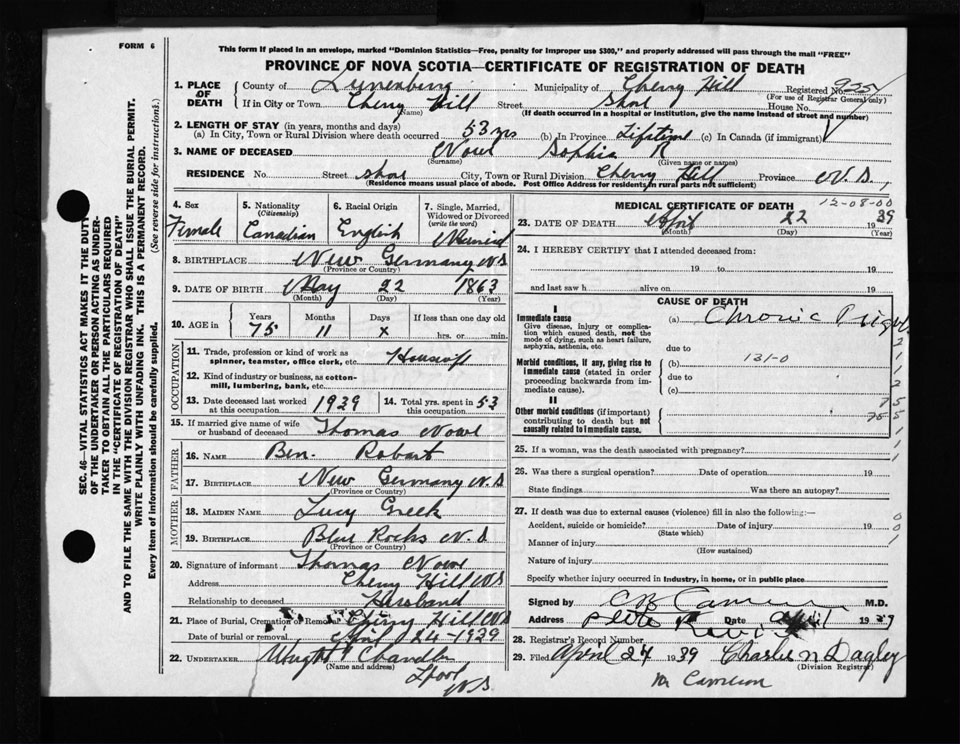 FORM 6
This form if placed in an envelope, marked "Dominion Statistics—Free, penalty for improper use $300," and properly addressed will pass through the mail "FREE"
PROVINCE OF NOVA SCOTIA—CERTIFICATE OF REGISTRATION OF DEATH
1. PLACE OF DEATH County of Lunenburg Municipality of Cherry Hill Registered No.
(For use of Registrar General only)
If in City or Town Cherry Hill Street Shore House No.
(Name) (If death occurred in a hospital or institution, give the name instead of street and number)
2. LENGTH OF STAY (in years, months and days)
(a) In City, Town or Rural Division where death occurred 53 yrs (b) In Province Lifetime (c) In Canada (if immigrant)
3. NAME OF DECEASED Nowe Sophia R
(Surname) (Given name or names)
RESIDENCE No. Street Shore City, Town or Rural Division Cherry Hill Province N.S.
(Residence means usual place of abode. Post Office Address for residents in rural parts not sufficient)
4. Sex Female
5. Nationality (Citizenship) Canadian
6. Racial Origin English
7. Single, Married, Widowed or Divorced (write the word) Married
8. BIRTHPLACE New Germany N.S
(Province or Country)
9. DATE OF BIRTH May 22 1863
(Month) (Day) (Year)
10. AGE in Years Months Days If less than one day
75 11 x hrs. or min.
OCCUPATION
11. Trade, profession or kind of work as spinner, teamster, office clerk, etc. Housewife
12. Kind of industry or business, as cotton-mill, lumbering, bank, etc.
13. Date deceased last worked at this occupation 1939
14. Total yrs. spent in this occupation 53
15. If married give name of wife or husband of deceased Thomas Nowe
FATHER
16. NAME Ben. Robart
17. BIRTHPLACE New Germany N.S
(Province or Country)
MOTHER
18. MAIDEN NAME Lucy Greek
19. BIRTHPLACE Blue Rocks N.S
(Province or Country)
20. Signature of informant Thomas Nowe
Address Cherry Hill N.S
Relationship to deceased Husband
21. Place of Burial, Cremation or Removal Cherry Hill N.S
Date of burial or removal April 24-1939
22. UNDERTAKER Wright Chandler
(Name and address)
Lpool
N.S
MEDICAL CERTIFICATE OF DEATH
12-08-00
23. DATE OF DEATH April 22 1939
(Month) (Day) (Year)
24. I HEREBY CERTIFY that I attended deceased from:
19 to 19
and last saw h alive on 19
CAUSE OF DEATH
I
Immediate cause (a) Chronic
Give disease, injury or complication which caused death, not the mode of dying, such as heart failure, asphyxia, asthenia, etc.
due to
Morbid conditions, if any, giving rise to immediate cause (stated in order proceeding backwards from immediate cause).
(b) 131-0
due to
(c)
II
Other morbid conditions (if important) contributing to death but not causally related to immediate cause.
25. If a woman, was the death associated with pregnancy?
26. Was there a surgical operation? Date of operation 19
State findings Was there an autopsy?
27. If death was due to external causes (violence) fill in also the following:—
Accident, suicide or homicide? Date of injury 19
(State which)
Manner of injury
(How sustained)
Nature of injury
Specify whether injury occurred in industry, in home, or in public place
Signed by M.D.
Address Date April 19
28. Registrar's Record Number
29. Filed April 27 1939 Charlie N Dagley
(Division Registrar)
Cameron
SEC. 46—VITAL STATISTICS ACT MAKES IT THE DUTY
OF THE UNDERTAKER OR PERSON ACTING AS UNDER-
TAKER TO OBTAIN ALL THE PARTICULARS REQUIRED
IN THE "CERTIFICATE OF REGISTRATION OF DEATH"
AND TO FILE THE SAME WITH THE DIVISION REGISTRAR WHO SHALL ISSUE THE BURIAL PERMIT.
WRITE PLAINLY WITH UNFADING INK. THIS IS A PERMANENT RECORD.
Every item of information should be carefully supplied. (See reverse side for instructions).